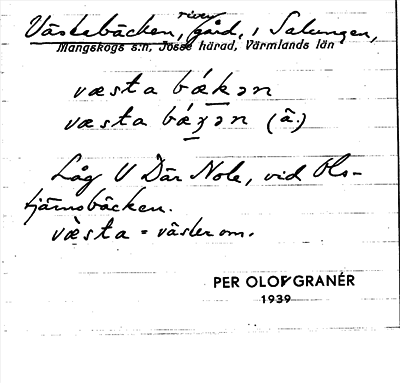 riven
Västebäcken, gård, i Salungen,
Mangskogs s:n, Jösse härad, Värmlands län
væsta bákən
væsta báʒən (â.)
Låg V Där Nole, vid Ols-
tjärnsbäcken.
væ̀sta = väster om.
PER OLOF GRANÉR
1939